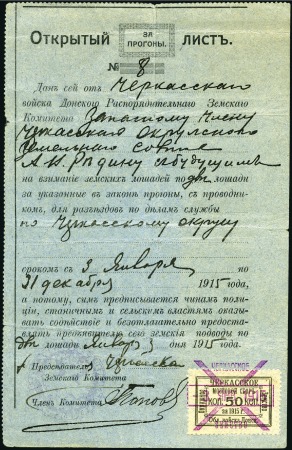 Открытый
ЗА
ПРОГОНЫ.
листъ.
№ 8
Данъ сей отъ Черкасскаго
войска Донскою Распорядительнаго Земскаго
Комитета Запасному Члену
Черкасскаго Окружного
Земельнаго Совѣта
на взиманіе земскихъ лошадей по двѣ лошади
за указанные въ законѣ прогоны, съ проводни-
комъ, для разъѣздовъ по дѣламъ службы
по Черкасскому округу
срокомъ съ 3 Января по
31 декабря 1915 года,
а потому, симъ предписывается чинамъ поли-
ціи, станичнымъ и сельскимъ властямъ оказы-
вать содѣйствіе и безоплательно предоста-
влять предъявителю сего земскія подводы по
двѣ лошади Января 3 дня 1915 года.
Предсѣдатель
Земскаго Комитета
Членъ Комитета Поповъ
ЧЕРКАССКОЕ
КОП. 50 КОП.
на 1915 г.
Обл. войска Донск.